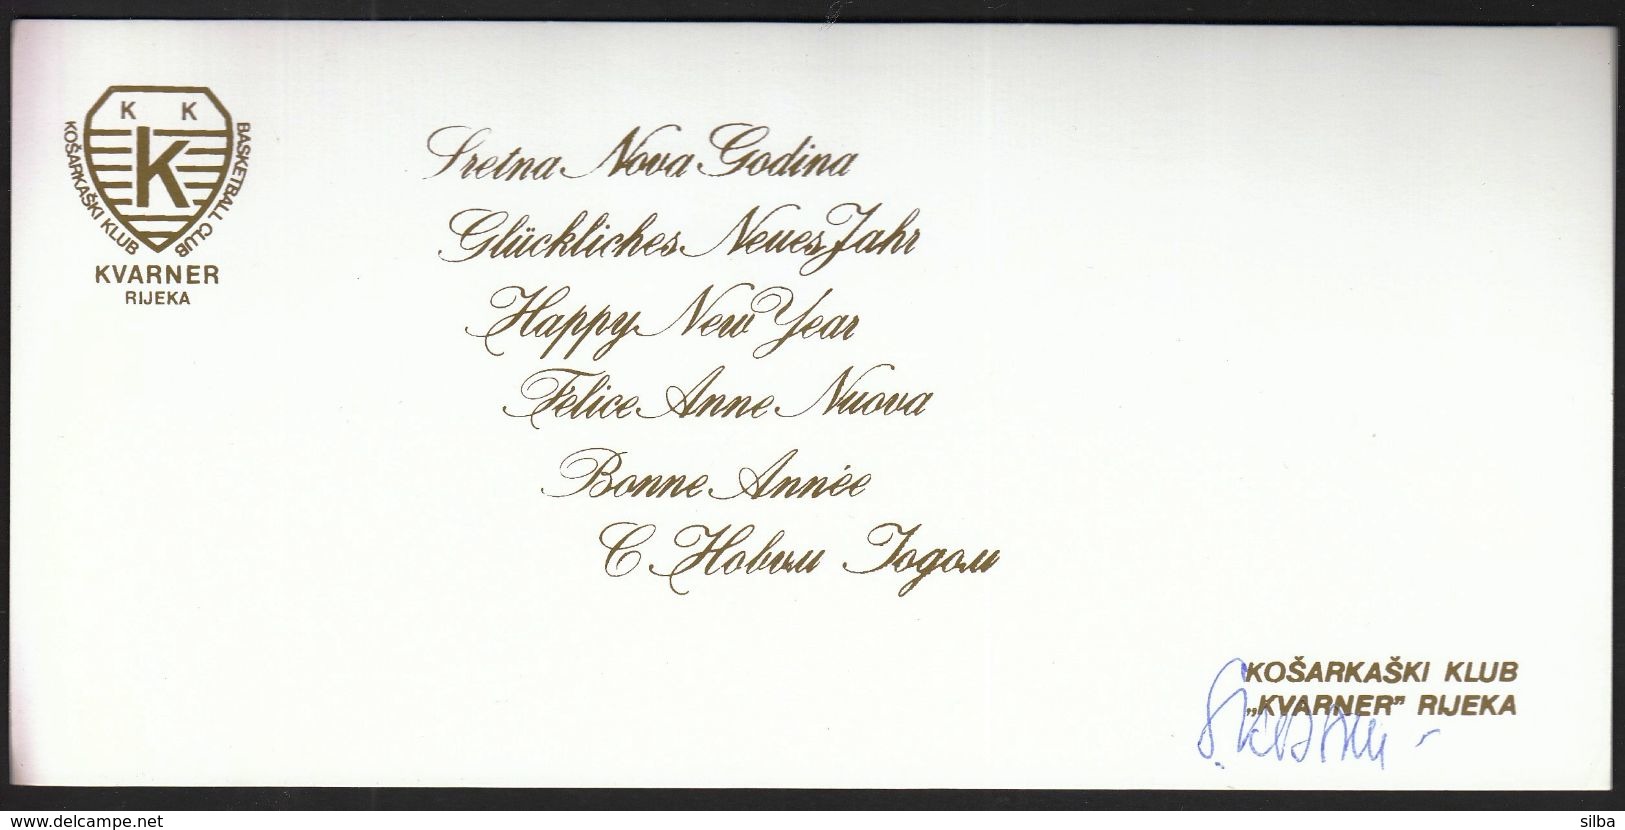 K K
K
KOŠARKAŠKI KLUB
BASKETBALL CLUB
KVARNER
RIJEKA
Sretna Nova Godina
Glückliches Neues Jahr
Happy New Year
Felice Anne Nuova
Bonne Année
С Новым Годом
KOŠARKAŠKI KLUB
„KVARNER” RIJEKA
www.delcampe.net
silba